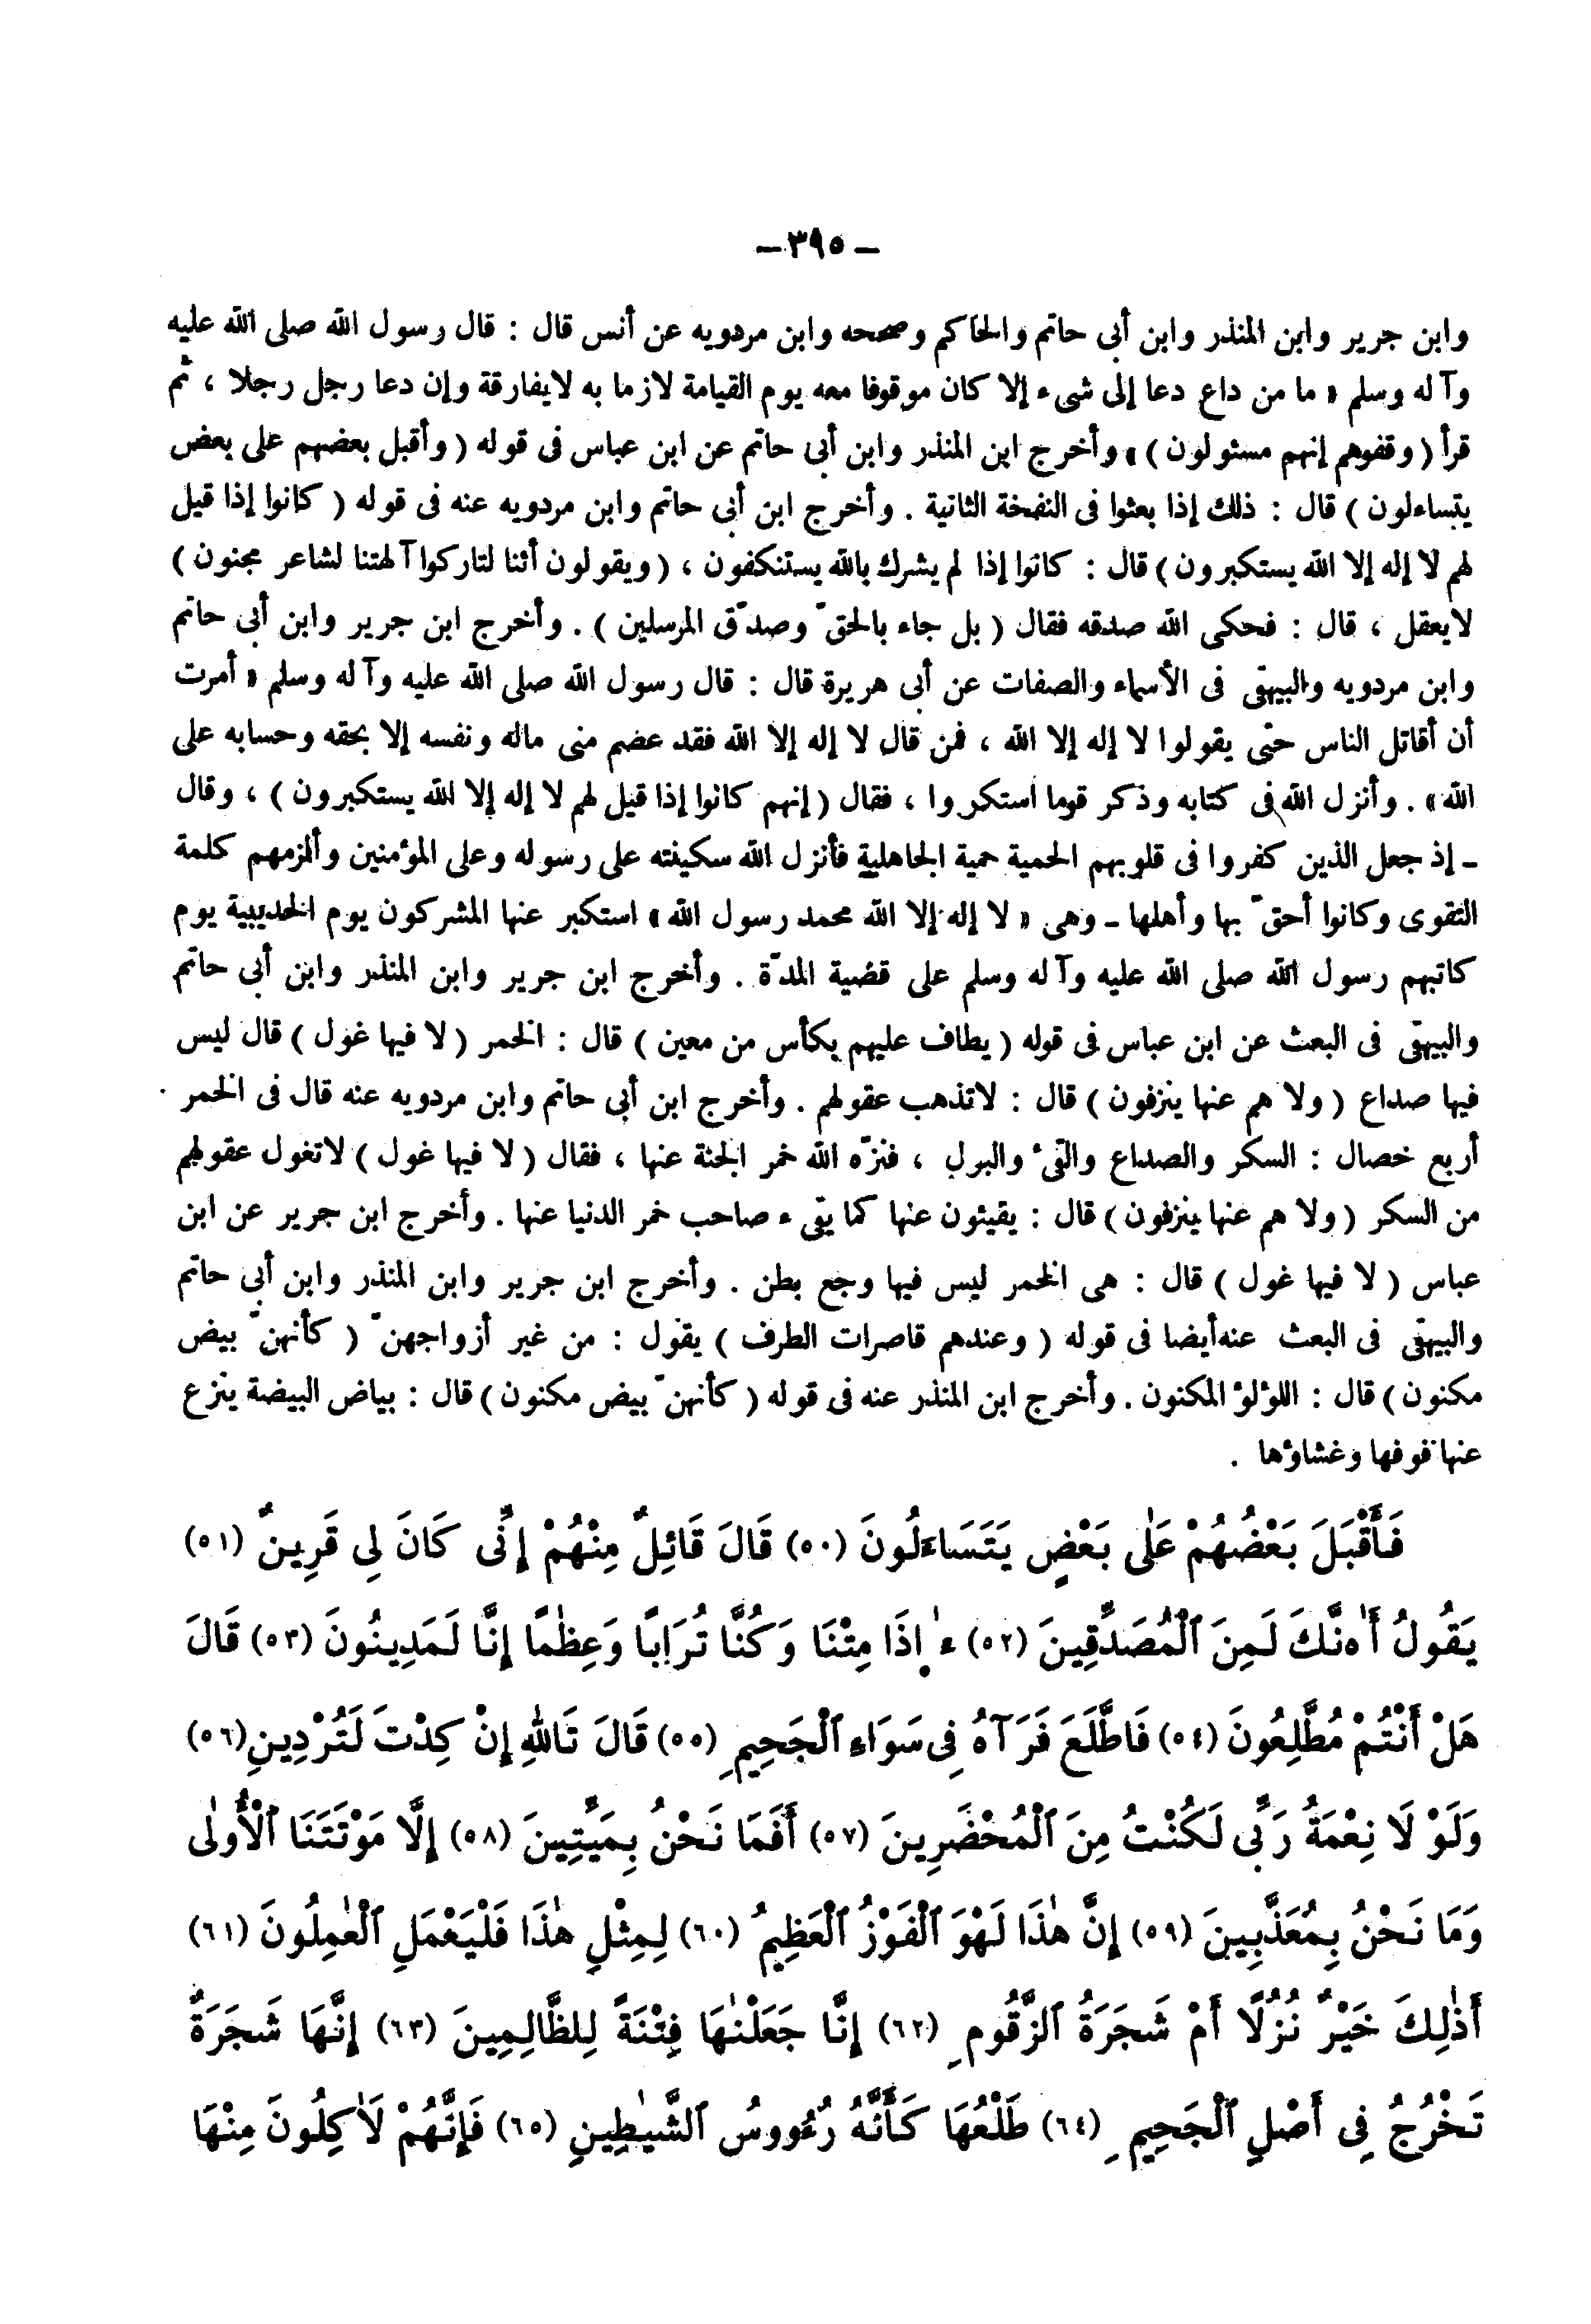 — ٣٩٥ —
وابن جرير وابن المنذر وابن أبى حاتم والحاكم وصححه وابن مردويه عن أنس قال : قال رسول الله صلى الله عليه
وآله وسلم « ما من داع دعا إلى شىء إلا كان موقوفا معه يوم القيامة لازما به لايفارقة وإن دعا رجل رجلا ، ثم
قرأ ( وقفوهم إنهم مسئولون ) » وأخرج ابن المنذر وابن أبى حاتم عن ابن عباس فى قوله ( وأقبل بعضهم على بعض
يتساءلون ) قال : ذلك إذا بعثوا فى النفخة الثانية . وأخرج ابن أبى حاتم وابن مردويه عنه فى قوله ( كانوا إذا قيل
لهم لا إله إلا الله يستكبرون ) قال : كانوا إذا لم يشرك بالله يستنكفون ، ( ويقولون أئنا لتاركوا آلهتنا لشاعر مجنون )
لايعقل ، قال : فحكى الله صدقه فقال ( بل جاء بالحقّ وصدّق المرسلين ) . وأخرج ابن جرير وابن أبى حاتم
وابن مردويه والبيهقى فى الأسماء والصفات عن أبى هريرة قال : قال رسول الله صلى الله عليه وآله وسلم « أمرت
أن أقاتل الناس حتى يقولوا لا إله إلا الله ، فمن قال لا إله إلا الله فقد عصم منى ماله ونفسه إلا بحقه وحسابه على
الله » . وأنزل الله فى كتابه وذكر قوما استكبروا ، فقال ( إنهم كانوا إذا قيل لهم لا إله إلا الله يستكبرون ) ، وقال
ـ إذ جعل الذين كفروا فى قلوبهم الحمية حمية الجاهلية فأنزل الله سكينته على رسوله وعلى المؤمنين وألزمهم كلمة
التقوى وكانوا أحقّ بها وأهلها ـ وهى « لا إله إلا الله محمد رسول الله » استكبر عنها المشركون يوم الحديبية يوم
كاتبهم رسول الله صلى الله عليه وآله وسلم على قضية المدّة . وأخرج ابن جرير وابن المنذر وابن أبى حاتم
والبيهقى فى البعث عن ابن عباس فى قوله ( يطاف عليهم بكأس من معين ) قال : الخمر ( لا فيها غول ) قال ليس
فيها صداع ( ولا هم عنها ينزفون ) قال : لاتذهب عقولهم . وأخرج ابن أبى حاتم وابن مردويه عنه قال فى الخمر
أربع خصال : السكر والصداع والقىء والبول ، فنزّه الله خمر الجنة عنها ، فقال ( لا فيها غول ) لاتغول عقولهم
من السكر ( ولا هم عنها ينزفون ) قال : يقيئون عنها كما يقىء صاحب خمر الدنيا عنها . وأخرج ابن جرير عن ابن
عباس ( لا فيها غول ) قال : هى الخمر ليس فيها وجع بطن . وأخرج ابن جرير وابن المنذر وابن أبى حاتم
والبيهقى فى البعث عنه أيضا فى قوله ( وعندهم قاصرات الطرف ) يقول : من غير أزواجهنّ ( كأنهنّ بيض
مكنون ) قال : اللؤلؤ المكنون . وأخرج ابن المنذر عنه فى قوله ( كأنهنّ بيض مكنون ) قال : بياض البيضة ينزع
عنها فوفها وغشاؤها .
فَأَقْبَلَ بَعْضُهُمْ عَلَى بَعْضٍ يَتَسَاءَلُونَ (٥٠) قَالَ قَائِلٌ مِنْهُمْ إِنِّى كَانَ لِى قَرِينٌ (٥١)
يَقُولُ أَءِنَّكَ لَمِنَ ٱلْمُصَدِّقِينَ (٥٢) ءَإِذَا مِتْنَا وَكُنَّا تُرَابًا وَعِظَٰمًا إِنَّا لَمَدِينُونَ (٥٣) قَالَ
هَلْ أَنْتُمْ مُطَّلِعُونَ (٥٤) فَاطَّلَعَ فَرَآهُ فِى سَوَاءِ ٱلْجَحِيمِ (٥٥) قَالَ تَاللهِ إِنْ كِدْتَ لَتُرْدِينِ (٥٦)
وَلَوْ لَا نِعْمَةُ رَبِّى لَكُنْتُ مِنَ ٱلْمُحْضَرِينَ (٥٧) أَفَمَا نَحْنُ بِمَيِّتِينَ (٥٨) إِلَّا مَوْتَتَنَا ٱلْأُولَىٰ
وَمَا نَحْنُ بِمُعَذَّبِينَ (٥٩) إِنَّ هَٰذَا لَهْوَ ٱلْفَوْزُ ٱلْعَظِيمُ (٦٠) لِمِثْلِ هَٰذَا فَلْيَعْمَلِ ٱلْعَٰمِلُونَ (٦١)
أَذَٰلِكَ خَيْرٌ نُزُلًا أَمْ شَجَرَةُ ٱلزَّقُومِ (٦٢) إِنَّا جَعَلْنَٰهَا فِتْنَةً لِلظَّالِمِينَ (٦٣) إِنَّهَا شَجَرَةٌ
تَخْرُجُ فِى أَصْلِ ٱلْجَحِيمِ (٦٤) طَلْعُهَا كَأَنَّهُ رُءُووسُ ٱلشَّيَٰطِينِ (٦٥) فَإِنَّهُمْ لَأٰكِلُونَ مِنْهَا